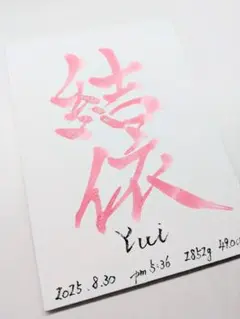 結依
Yui
2025.8.30 pm 5:36 2852g 49.0